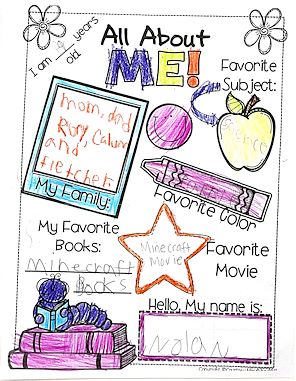 I am 9 years old
All About
ME!
Favorite
Subject:
Science
mom, dad
Rory, Calum
and
fletcher
My Family:
Favorite Color
My Favorite
Books:
Minecraft
Books
Minecraft
Movie
Favorite
Movie
Hello, My name is:
Nolan